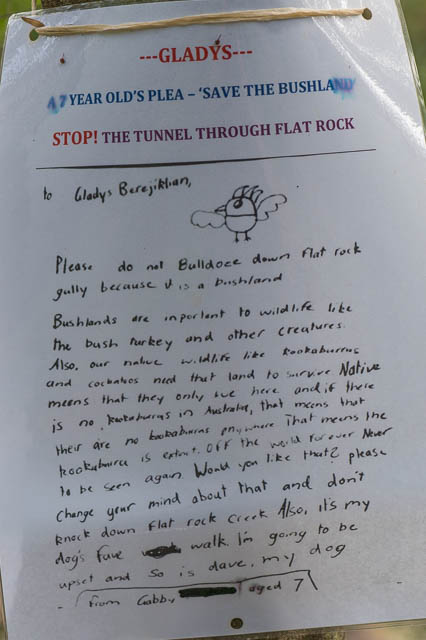 ---GLADYS---
A 7 YEAR OLD'S PLEA – 'SAVE THE BUSHLAND
STOP! THE TUNNEL THROUGH FLAT ROCK
to Gladys Berejiklian,
Please do not Bulldoze down flat rock
gully because it is a bushland
Bushlands are inportent to wildlife like
the bush turkey and other creatures.
Also, our native wildlife like kookaburras
and cockatoos need that land to survive Native
means that they only live here and if there
is no kookaburras in Australia, that means that
their are no kookaburras anywhere That means the
kookaburra is extinct. Off the world forever Never
to be seen again. Would you like that? please
change your mind about that and don't
knock down flat rock creek Also, it's my
dog's fave walk. I'm going to be
upset and so is dave, my dog
From Gabby, aged 7